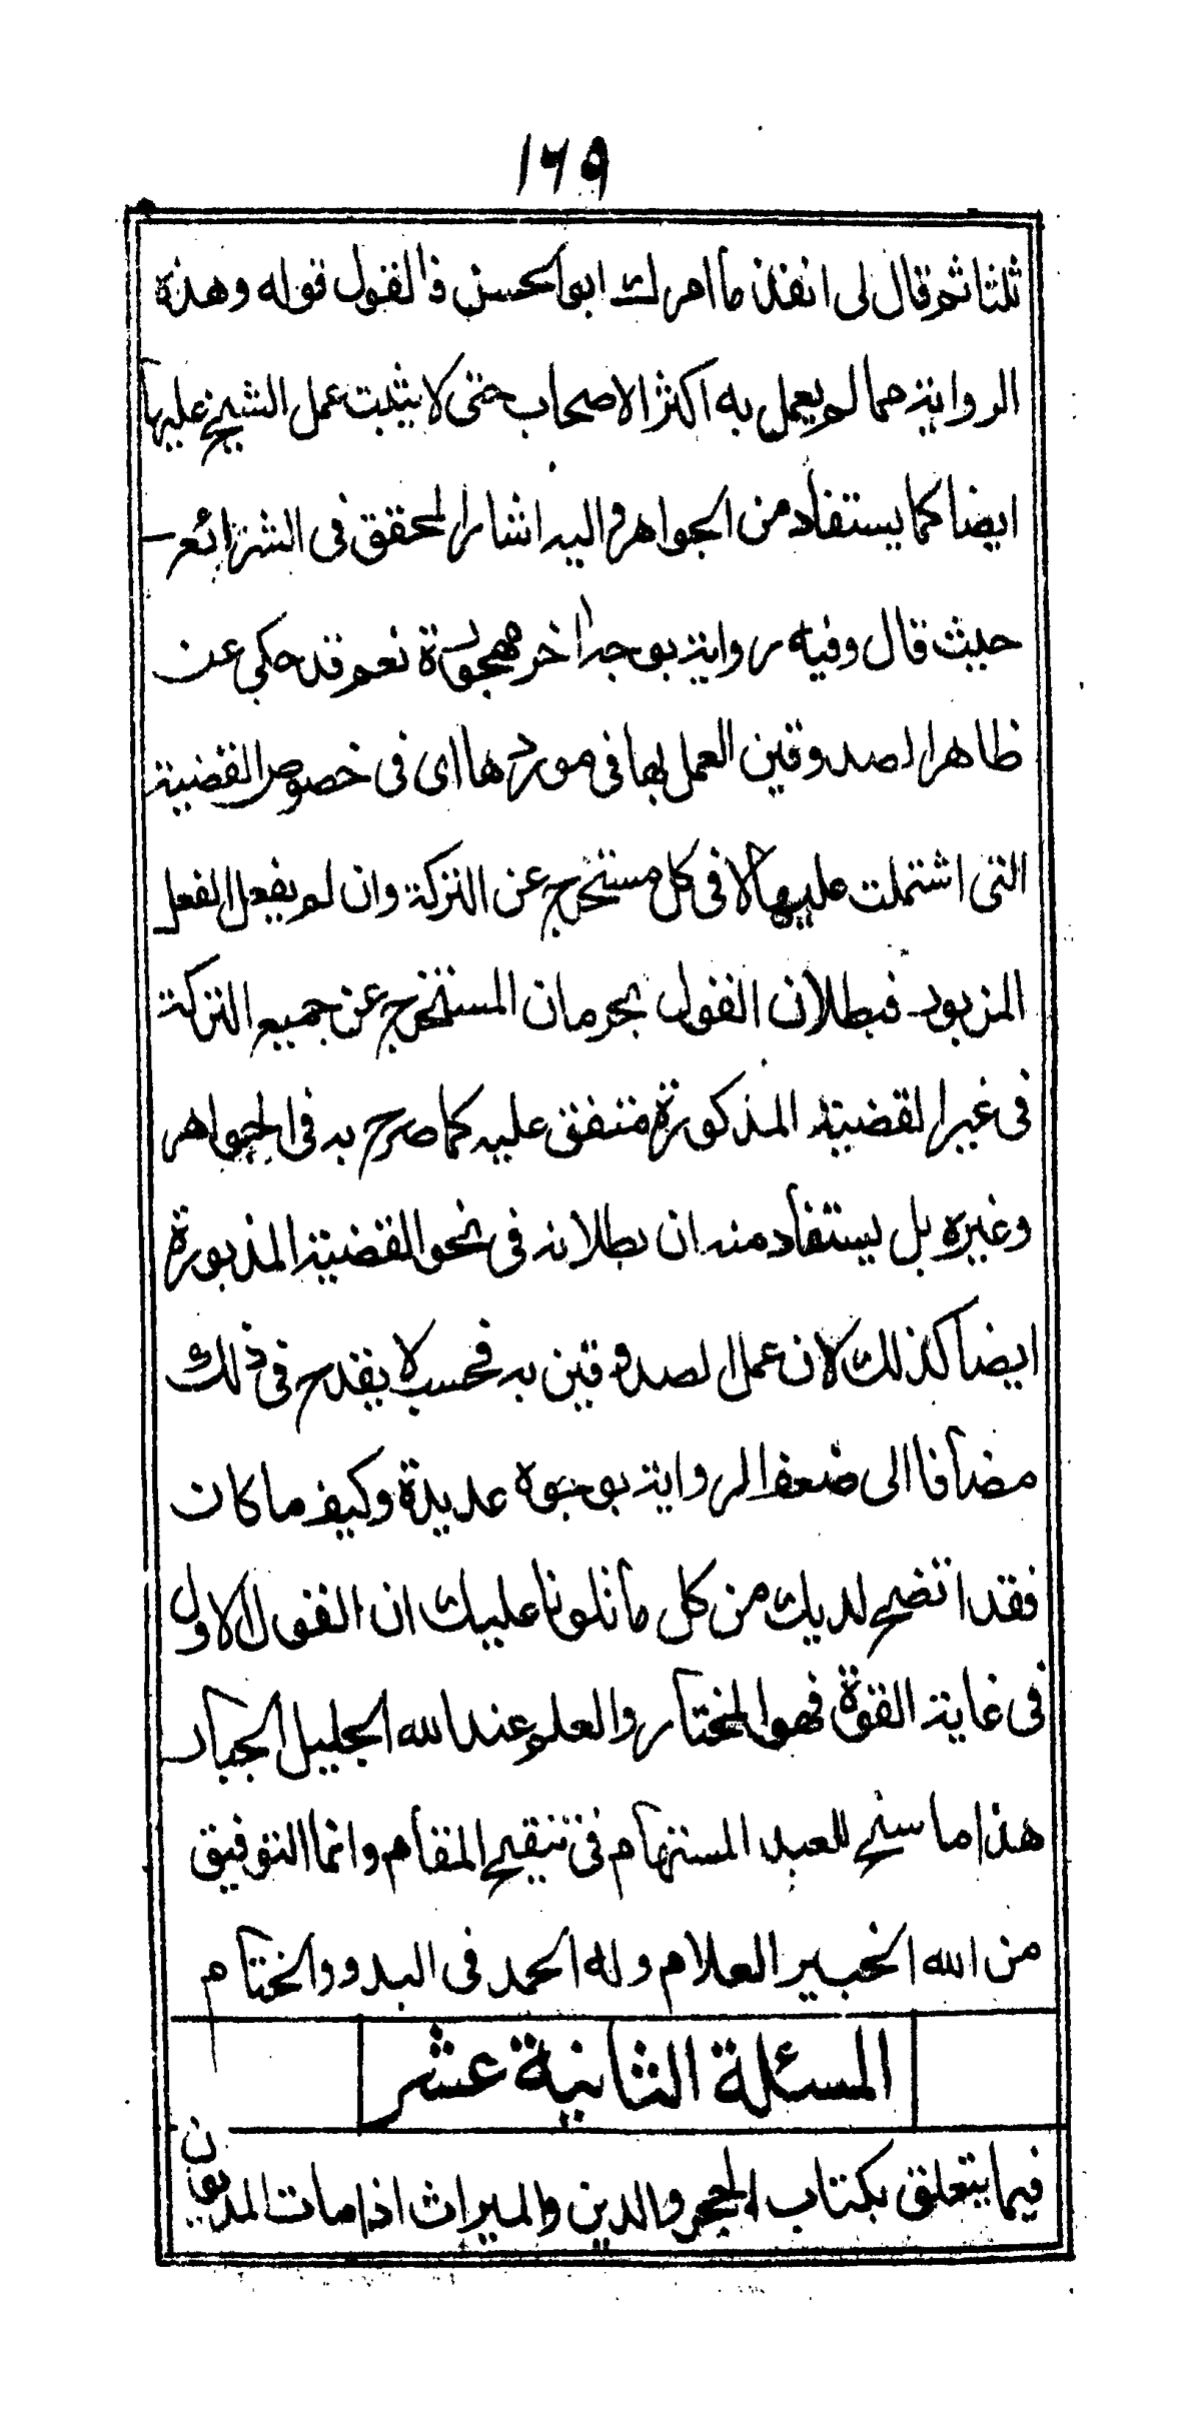 ١٦٩
ثلثا ثم قال لى انفذ ما امرك ابو الحسن فالقول قوله وهذه
الرواية مما لم يعمل به اكثر الاصحاب حتى لا يثبت عمل الشيخ عليها
ايضا كما يستفاد من الجواهر واليه اشار المحقق فى الشرائع
حيث قال وفيه رواية بوجه اخر مهجورة نعم قد حكى عن
ظاهر الصدوقين العمل بها فى موردها اى فى خصوص القضية
التى اشتملت عليها لا فى كل مستخرج عن التركة وان لم يفعل الفعل
المزبور فبطلان القول بحرمان المستخرج عن جميع التركة
فى غير القضية المذكورة متفق عليه كما صرح به فى الجواهر
وغيره بل يستفاد منه ان بطلانه فى نحو القضية المذبورة
ايضا كذلك لان عمل الصدوقين به فحسب لا يقدح فى ذلك
مضافا الى ضعف الرواية بوجوه عديدة وكيف ما كان
فقد اتضح لديك من كل ما تلونا عليك ان القول الاول
فى غاية القوة فهو المختار والعلم عند الله الجليل الجبار
هذا ما سنح للعبد المستهام فى تنقيح المقام وانما التوفيق
من الله الخبير العلام وله الحمد فى البدو والختام
المسئلة الثانية عشر
فيما يتعلق بكتاب الحجر والدين والميراث اذا مات المديون